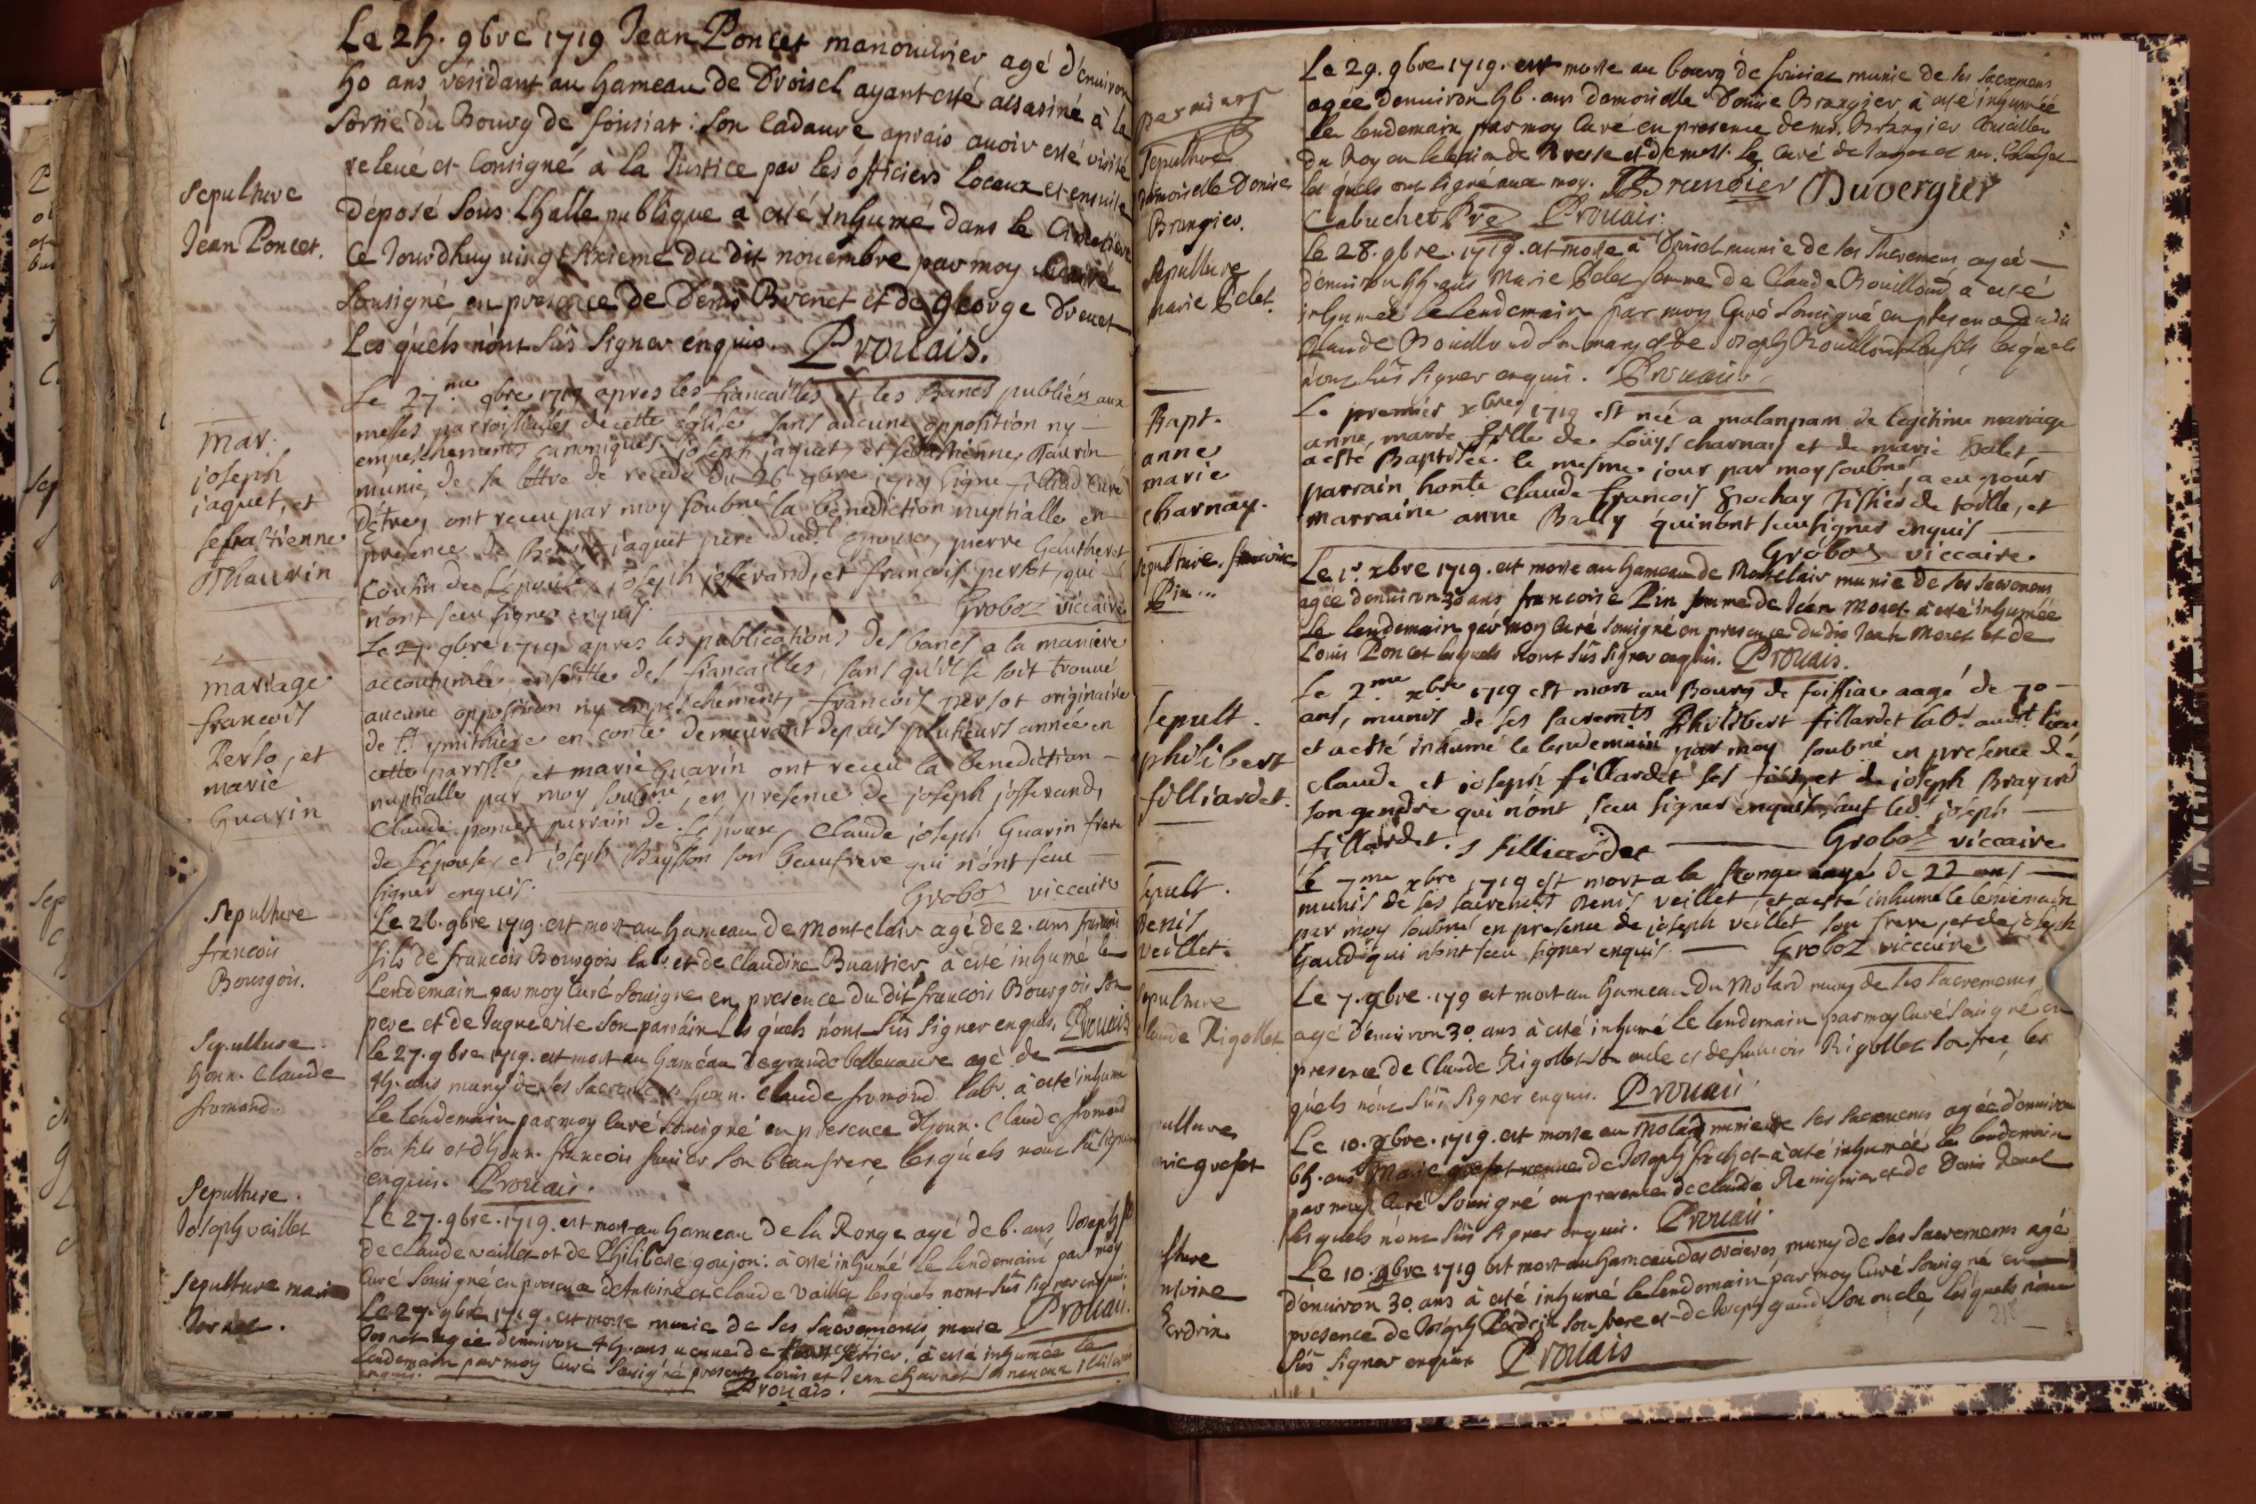 Le 24. 9bre 1719 Jean Poncet manouvrier agé d'enuiron
40 ans residant au hameau de Droisel ayant esté assasiné à la
sortie du Bourg de foissiat: son Cadaure aprais auoir esté visité
releué et Consigné à la Justice par les officiers locaux et ensuite
déposé sous Lhalle publique a esté inhumé dans le Cimetiere
Ce Jourdhuy uingt sixieme du dit nouembre par moy Curé
sousigné en presence de Denis Brenet et de George Drenet
Les quéls nònt sûs signer enquis. Prouais.
Sepulture
Jean Poncet.
Le 27.me 9bre 1719 apres les fiancailles et les Bancs publiéz aux
messes parroissialles de cette église sans aucune opposition ny
empeschements canoniques joseph jaquet, et sebastienne Thaurin
munie de sa lettre de recede du 26 9bre signe curé
ont receu par moy soubné la benediction nuptialle en
presence de jaquet pere dud.t epoux, pierre Gautheret
Cousin de Lepouse joseph jofferand, et francois persot, qui
n'ont sceu signer enquis Groboz viccaire
Mar.
joseph
jaquet, et
sebastienne
Thaurin
Le 27. 9bre 1719 apres les publications des bancs a la maniere
accoutumée ensuitte des fiancailles, sans qu'il se soit trouué
aucune opposition ny empeschements francois persot originaire
de St ymithiere en conté demeurant depuis plusieurs année en
cette parrsse, et marie Guarin ont receu la benediction
nuptialle par moy soubné, en presence de joseph jofferand,
Claude parrain de Lepoux, Claude joseph Guarin frere
de Lépouse, et joseph Buysson son beaufrere qui n'ont sceu
signer enquis. Groboz viccaire
mariage
francois
Perso, et
marie
Guarin
Le 26. 9bre 1719. est mort au hameau de Montclair agé de 2. ans francois
fils de francois Bourgois labr. et de Claudine Buatier a esté inhumé le
Lendemain par moy Curé sousigne en presence du dit francois Bourgois son
pere et de son parrain Les quéls nònt sûs signer enquis. Prouais
Sepulture
francois
Bourgois.
le 27. 9bre 1719. est mort au hameau de grande bellevaure agé de
44. ans muny de ses sacremens honn. Claude fromond labr. à esté inhumé
Le lendemain par moy Curé sousigné en presence d'honn. Claude fromond
son fils et d'honn. francois son beaufrere lesquéls nònt sû signer
enquis. Prouais.
Sepulture.
honn. Claude
fromond.
Le 27. 9bre. 1719. est mort au hameau de la Ronge agé de 6. ans Joseph fils
de Claude vaillet et de Philiberte goujon: à esté inhumé le lendemain par moy
Curé sousigné en presence d'Antoine et Claude vaillet lesquels nont sûs signer enquis.
Prouais.
Sepulture.
Joseph vaillet
Le 27. 9bre 1719. est morte munie de ses sacremens marie
agée d'enuiron 44. ans ueuue de à esté inhumée le
lendemain par moy Curé sousigné presents Louis et Jean
enquis. Prouais.
Sepulture marie
Le 29. 9bre 1719. est morte au bourg de foissiat munie de ses sacremens
agée denuiron 46. ans demoiselle Denise Brangier à esté inhumée
le lendemain par moy Curé en presence de mr. Brangier Conseiller
du Roy en lelection de Bresse et de mess. le Curé de et mr. Cabuchet
les quéls ont signé auec moy. Brangier Duvergier
Cabuchet Pre Prouais.
Sepulture
demoiselle Denise
Brangier.
Le 28. 9bre. 1719. est morte à Droisel munie de ses sacremens agée
d'enuiron 44. ans Marie Pelet femme de Claude Bouilloud à esté
inhumée Le lendemain par moy Curé sousigné en presence dudit
Claude Bouilloud son mary et de Joseph Bouilloud son fils lesquels
nont sûs signer enquis. Prouais.
Sepulture
marie Pelet.
Le premier xbre 1719 est née a malanpam de legitime mariage
anne marie fille de Loüys charnay et de marie
a esté Baptisée le mesme jour par moy soubné, a eu pour
parrain honte Claude francois Grochay Tissier de toille, et
marraine anne Bally qui n'ont sceu signer enquis
Groboz viccaire.
Bapt.
anne
marie
charnay.
Le 1r. xbre 1719. est morte au hameau de Montclair munie de ses sacremens
agée denuiron 30 ans francoise Pin femme de Jean Moret à esté inhumée
Le lendemain par moy Curé sousigné en presence dudit Jean Moret et de
Louis Poncet lesquels nont sûs signer enquis. Prouais.
sepulture. francoise
Pin
Le 2.me xbre 1719 est mort au Bourg de foissiac aagé de 70
ans, munis de ses sacremts Philibert fillardet labr. audt. lieu
et a esté inhumé le lendemain par moy soubné en presence de
Claude et joseph fillardet ses fils, et de joseph Brayard
son gendre qui n'ont sceu signer enquis, sauf led.t joseph
fillardet. J filliardet Groboz viccaire
sepult.
philibert
filliardet.
Le 7.me xbre 1719 est mort a la Ronge aagé de 22 ans
munis de ses sacremts Denis veillet, et a esté inhumé le lendemain
par moy soubné en presence de joseph veillet son frere, et de joseph
Gaud qui n'ont sceu signer enquis Groboz viccaire
sepult.
Denis
veillet.
Le 7. xbre. 1719 est mort au hameau du Molard muny de ses sacremens
agé d'enuiron 30. ans à esté inhumé le lendemain par moy Curé sousigné en
presence de Claude Rigollet son oncle et de francois Rigollet son frere, les
quéls nònt sûs signer enquis. Prouais
sepulture
Claude Rigollet
Le 10. xbre. 1719. est morte au Molard munie de ses sacremens agée d'enuiron
64. ans Marie grefet ueuue de Joseph à esté inhumée le lendemain
par moy Curé sousigné en presence de Claude et de Denis
les quéls nònt sûs signer enquis. Prouais.
sepulture
marie grefet
Le 10. xbre 1719 est mort au hameau des muny de ses sacremens agé
d'enuiron 30. ans à esté inhumé le lendemain par moy Curé sousigné en
presence de Joseph Perdrix son frere et de Joseph gaud son oncle, lesquéls nònt
sûs signer enquis Prouais
sepulture
Antoine
Perdrix